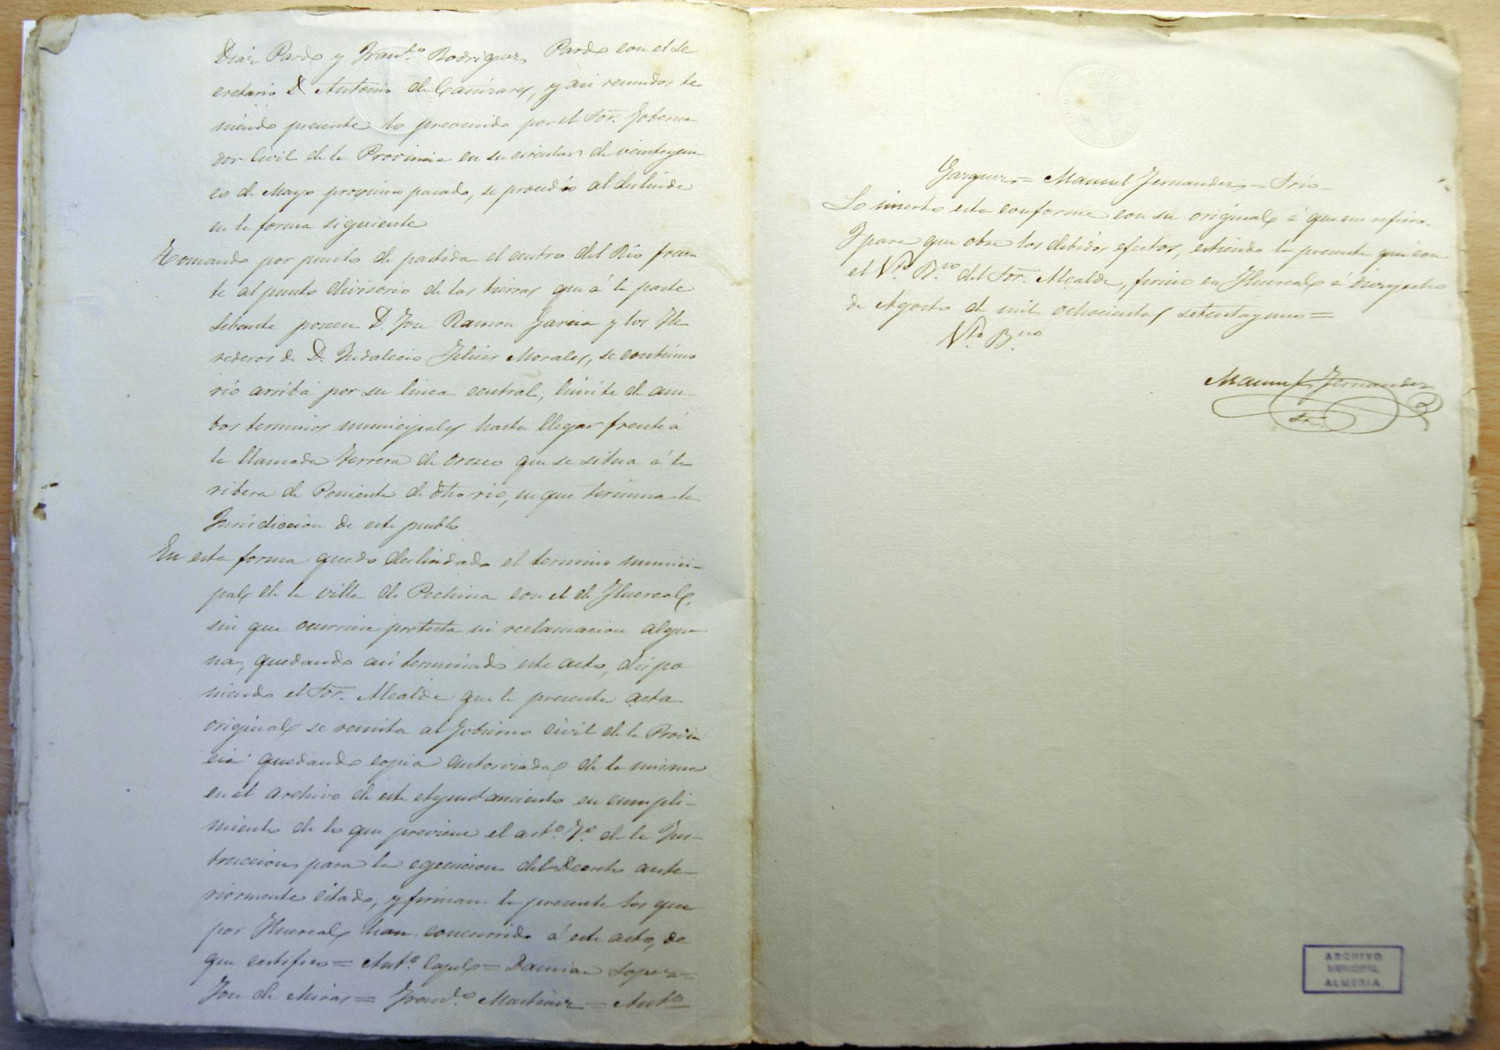 Diaz Pardo y Fran.co Rodriguez Pardo con el Se
cretario D. Antonio de Cañizares, y asi reunidos te
niendo presente lo prevenido por el Sor. Goberna
dor Civil de la Provincia en su circular de veintycin
co de Mayo proximo pasado, se procedió al deslinde
en la forma siguiente
Tomando por punto de partida el centro del Rio fren
te al punto divisorio de las tierras que á la parte
Lebante poseen D. José Ramon Garcia y los He
rederos de D. Indalecio Morales, se continuo
rio arriba por su linea central, limite de am
bos terminos municipales hasta llegar frente á
la llamada Terrera de Orozco que se situa á la
ribera de Poniente de dho rio, en que termina la
Jurisdiccion de este pueblo
En esta forma quedó deslindado el termino munici-
pal de la villa de Pechina con el de Huercal,
sin que ocurriese protesta ni reclamacion algu
na, quedando asi terminado este acto, dispo
niendo el Sor. Alcalde que la presente acta
original se remita al Gobierno civil de la Provin
cia quedando copia autorizada de la misma
en el archivo de este Ayuntamiento en cumpli-
miento de lo que previene el art.o 7.o de la Ins-
truccion para la egecucion del Decreto ante-
riormente citado, y firman la presente los que
por Huercal han concurrido á este acto, de
que certifico = Ant.o = Damian Lopez =
José de Miras = Fran.co Martinez = Ant.o
= Manuel Fernandez = Srio-
Lo inserto está conforme con su original á que me refiero.
Y para que obre los debidos efectos, estiendo la presente que con
el V.to B.no del Sor. Alcalde, firmo en Huercal á diez y ocho
de Agosto de mil ochocientos setenta y uno =
V.to B.no
Manuel Fernandez
Srio
ARCHIVO
MUNICIPAL
ALMERIA